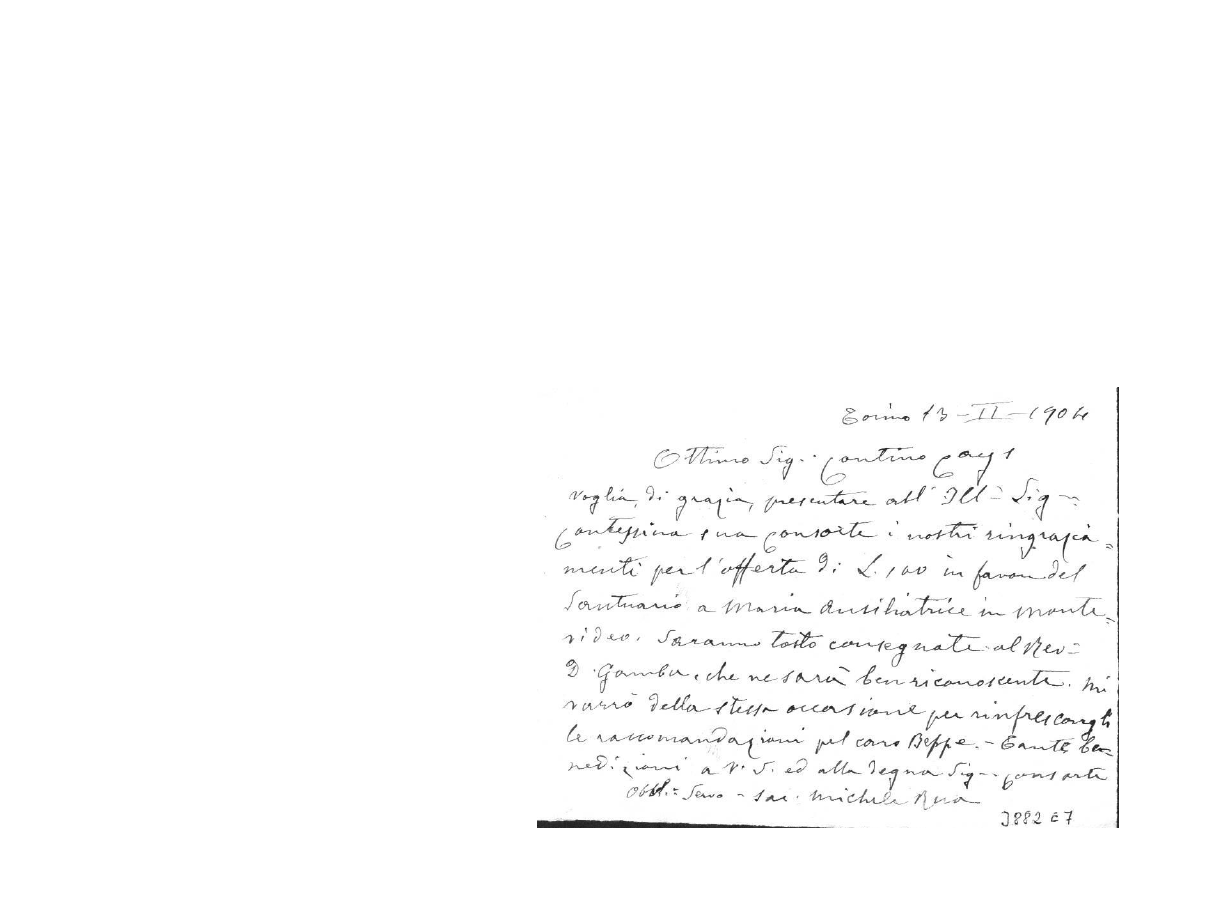 Torino 13 - II - 1904
Ottimo Sig.. Contino Cays
Voglia, di grazia, presentare all' Ill- Sig-
Contessina sua Consorte i nostri ringrazia=
menti per l'offerta di L. 100 in favor del
Santuario a Maria Ausiliatrice in Monte=
video. Saranno tosto consegnate al Rev-
D. Gamba, che ne sarà ben riconoscente. Mi
varrò della stessa occasione per rinfrescargli
le raccomandazioni pel caro Beppe. - Tante be=
nedizioni a V. S. ed alla degna Sig- Consorte
Obbl.- Servo - Sac. Michele Rua
3882 E7